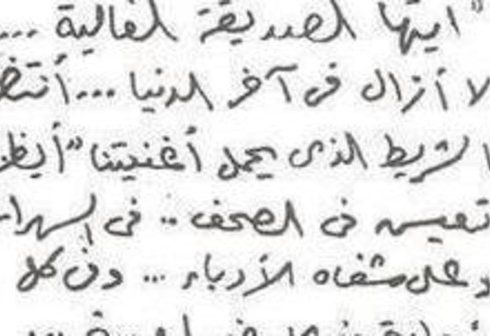 "ايتها الصديقة الغالية ...
لا أزال في آخر الدنيا ... أنتظر
الشريط الذى يحمل أغنيتنا "أيظن
تعيس في الصحف .. في السهرات
وعلى شفاه الأدباء ... وفي كل